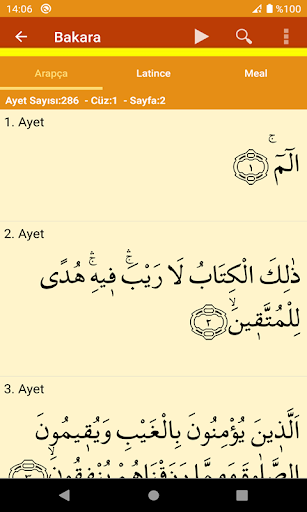 14:06
Bakara
Arapça Latince Meal
Ayet Sayısı:286 - Cüz:1 - Sayfa:2
1. Ayet
الٓمٓ ۚ ﴿١﴾
2. Ayet
ذٰلِكَ الْكِتَابُ لَا رَيْبَۚۛ ف۪يهِۚۛ هُدًى
لِلْمُتَّق۪ينَۙ ﴿٢﴾
3. Ayet
اَلَّذ۪ينَ يُؤْمِنُونَ بِالْغَيْبِ وَيُق۪يمُونَ
الصَّلٰوةَ وَمِمَّا رَزَقْنَاهُمْ يُنْفِقُونَۙ ﴿٣﴾